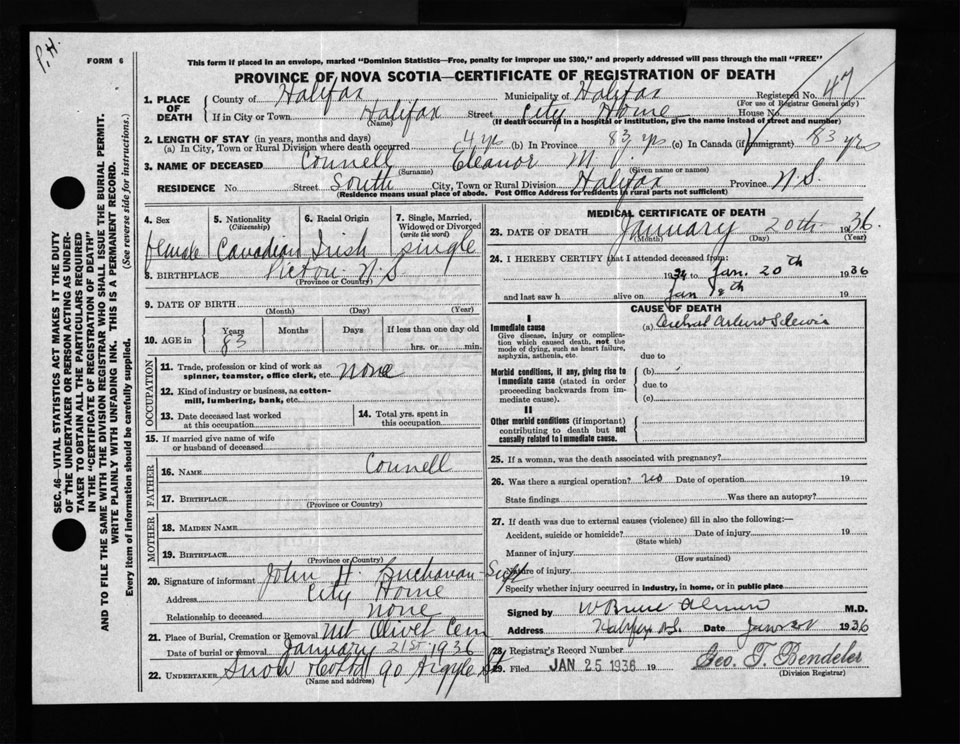 P. H.
FORM 6
This form if placed in an envelope, marked "Dominion Statistics—Free, penalty for improper use $300," and properly addressed will pass through the mail "FREE"
PROVINCE OF NOVA SCOTIA—CERTIFICATE OF REGISTRATION OF DEATH
1. PLACE OF DEATH
County of Halifax Municipality of Halifax Registered No. 47
(For use of Registrar General only)
If in City or Town Halifax Street City Home House No.
(Name) (If death occurred in a hospital or institution, give the name instead of street and number)
2. LENGTH OF STAY (in years, months and days)
(a) In City, Town or Rural Division where death occurred 4 yrs (b) In Province 83 yrs (c) In Canada (if immigrant) 83 yrs
3. NAME OF DECEASED Connell Eleanor M J.
(Surname) (Given name or names)
RESIDENCE No. Street South City, Town or Rural Division Halifax Province N.S.
(Residence means usual place of abode. Post Office Address for residents in rural parts not sufficient)
4. Sex female
5. Nationality (Citizenship) Canadian
6. Racial Origin Irish
7. Single, Married, Widowed or Divorced (write the word) single
8. BIRTHPLACE Pictou N.S
(Province or Country)
9. DATE OF BIRTH
(Month) (Day) (Year)
10. AGE in Years 83 Months Days If less than one day old
hrs. or min.
OCCUPATION
11. Trade, profession or kind of work as
spinner, teamster, office clerk, etc. none
12. Kind of industry or business, as cotton-
mill, lumbering, bank, etc.
13. Date deceased last worked
at this occupation
14. Total yrs. spent in
this occupation
15. If married give name of wife
or husband of deceased
FATHER
16. NAME Connell
17. BIRTHPLACE
(Province or Country)
MOTHER
18. MAIDEN NAME
19. BIRTHPLACE
(Province or Country)
20. Signature of informant John H. Buchanan - Supt
Address City Home
Relationship to deceased none
21. Place of Burial, Cremation or Removal Mt Olivet Cem
Date of burial or removal January 21ST 1936
22. UNDERTAKER Snow & Co Ltd 90 Argyle St
(Name and address)
MEDICAL CERTIFICATE OF DEATH
23. DATE OF DEATH January 20th 1936.
(Month) (Day) (Year)
24. I HEREBY CERTIFY that I attended deceased from:
to Jan. 20th 1936
and last saw h alive on Jan 18th 19
CAUSE OF DEATH
I
Immediate cause
Give disease, injury or complica-
tion which caused death, not the
mode of dying, such as heart failure,
asphyxia, asthenia, etc.
(a)
due to
Morbid conditions, if any, giving rise to
immediate cause (stated in order
proceeding backwards from im-
mediate cause).
(b)
due to
(c)
II
Other morbid conditions (if important)
contributing to death but not
causally related to immediate cause.
25. If a woman, was the death associated with pregnancy?
26. Was there a surgical operation? no Date of operation 19
State findings Was there an autopsy?
27. If death was due to external causes (violence) fill in also the following:—
Accident, suicide or homicide? Date of injury 19
(State which)
Manner of injury
(How sustained)
Nature of injury
Specify whether injury occurred in industry, in home, or in public place
Signed by M.D.
Address Halifax N.S. Date 1936
28. Registrar's Record Number
29. Filed JAN 25 1936 19 Geo. T. Bendeler
(Division Registrar)
SEC. 46—VITAL STATISTICS ACT MAKES IT THE DUTY
OF THE UNDERTAKER OR PERSON ACTING AS UNDER-
TAKER TO OBTAIN ALL THE PARTICULARS REQUIRED
IN THE "CERTIFICATE OF REGISTRATION OF DEATH"
AND TO FILE THE SAME WITH THE DIVISION REGISTRAR WHO SHALL ISSUE THE BURIAL PERMIT.
WRITE PLAINLY WITH UNFADING INK. THIS IS A PERMANENT RECORD.
Every item of information should be carefully supplied. (See reverse side for instructions.)